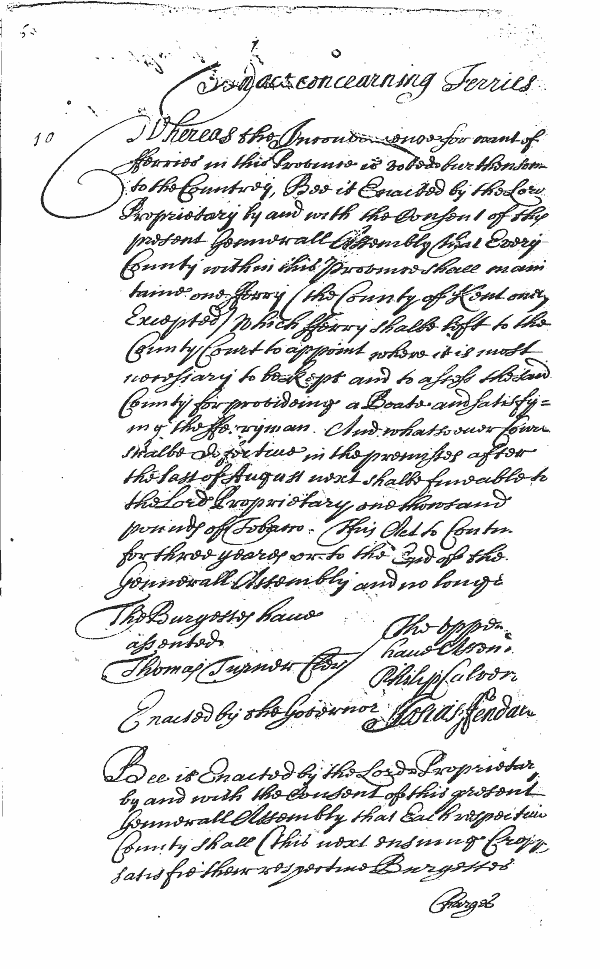 An act concearning Ferries
10
Whereas the Inconvenience for want of
fferries in this Province is very burthensom
to the Countrey, Bee it Enacted by the Lord
Proprietary by and with the Consent of this
present Gennerall Assembly that Every
County within this Province shall main
taine one fferry (the County of Kent only
Excepted) Which fferry shalbe left to the
County Court to appoint where it is most
necessary to be Kept and to assess the said
County for provideing a Boate and satisfy=
ing the fferryman. And whatsoever County
shalbe defective in the premisses after
the last of August next shalbe fineable to
the Lord Proprietary one thousand
pounds of Tobacco. This Act to Contin
for three yeares or to the End of the
Gennerall Assembly and no longe
The Burgesses have
assented
Thomas Turner Cler
The upper
have Assen
Philip Calver
Enacted by the Governor
Josias ffendall
Bee it Enacted by the Lord Proprietary
by and with the Consent of this present
Gennerall Assembly that Each respective
County shall (this next ensuing Cropp
satisfie their respective Burgesses
Charges